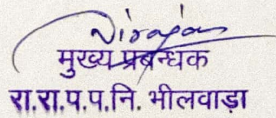 मुख्य प्रबन्धक
रा.रा.प.प.नि. भीलवाड़ा